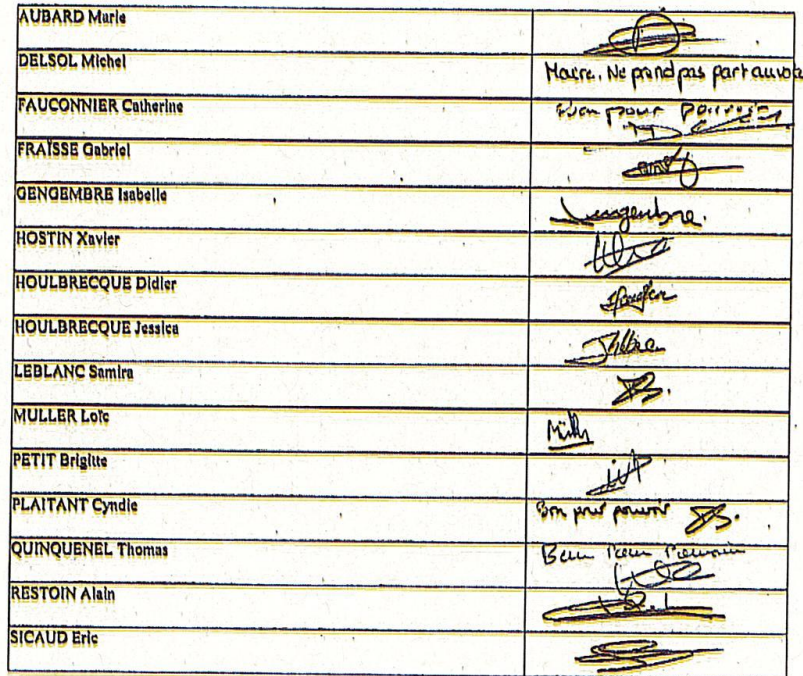 AUBARD Marie
DELSOL Michel
Maire. Ne prend pas part au vote
FAUCONNIER Catherine
Bon pour pouvoir
FRAÏSSE Gabriel
GENGEMBRE Isabelle
Gengembre.
HOSTIN Xavier
HOULBRECQUE Didier
HOULBRECQUE Jessica
LEBLANC Samira
MULLER Loïc
PETIT Brigitte
PLAITANT Cyndie
Bon pour pouvoir
QUINQUENEL Thomas
Bon Pour Pouvoir
RESTOIN Alain
SICAUD Eric